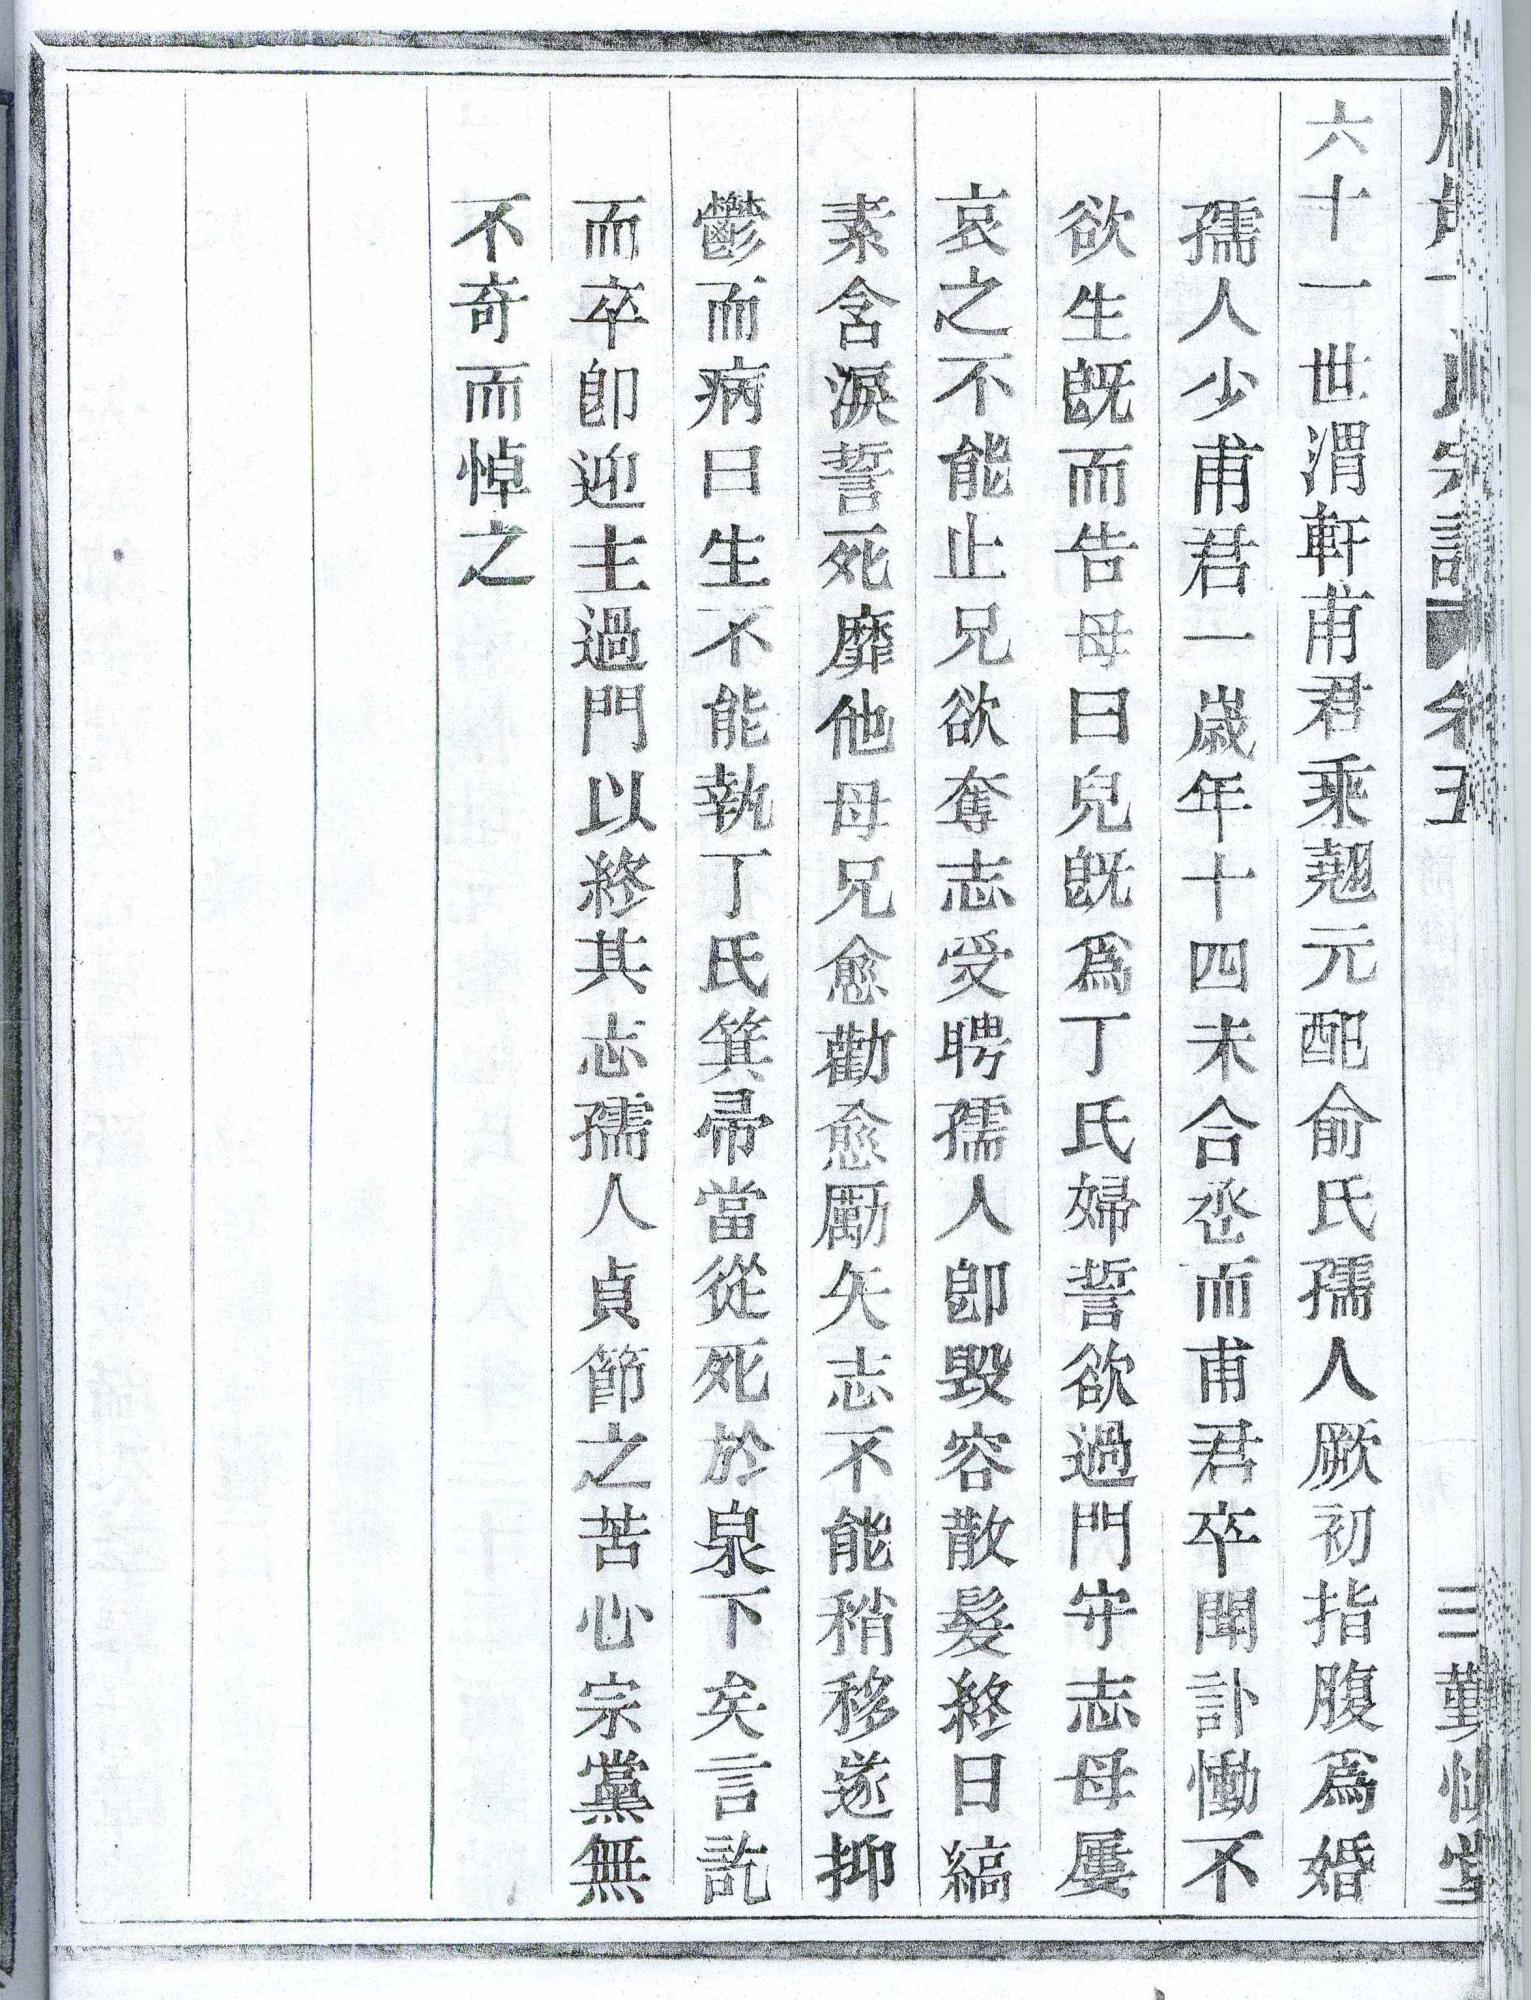 氏宗譜 卷五 三 勤慎堂
六十一世渭軒甫君乘翹元配俞氏孺人厥初指腹爲婚
孺人少甫君一歲年十四未合卺而甫君卒聞訃慟不
欲生旣而告母曰兒旣爲丁氏婦誓欲過門守志母屢
哀之不能止兄欲奪志受聘孺人卽毀容散髮終日縞
素含淚誓死靡他母兄愈勸愈勵矢志不能稍移遂抑
鬱而病曰生不能執丁氏箕帚當從死於泉下矣言訖
而卒卽迎主過門以終其志孺人貞節之苦心宗黨無
不奇而悼之